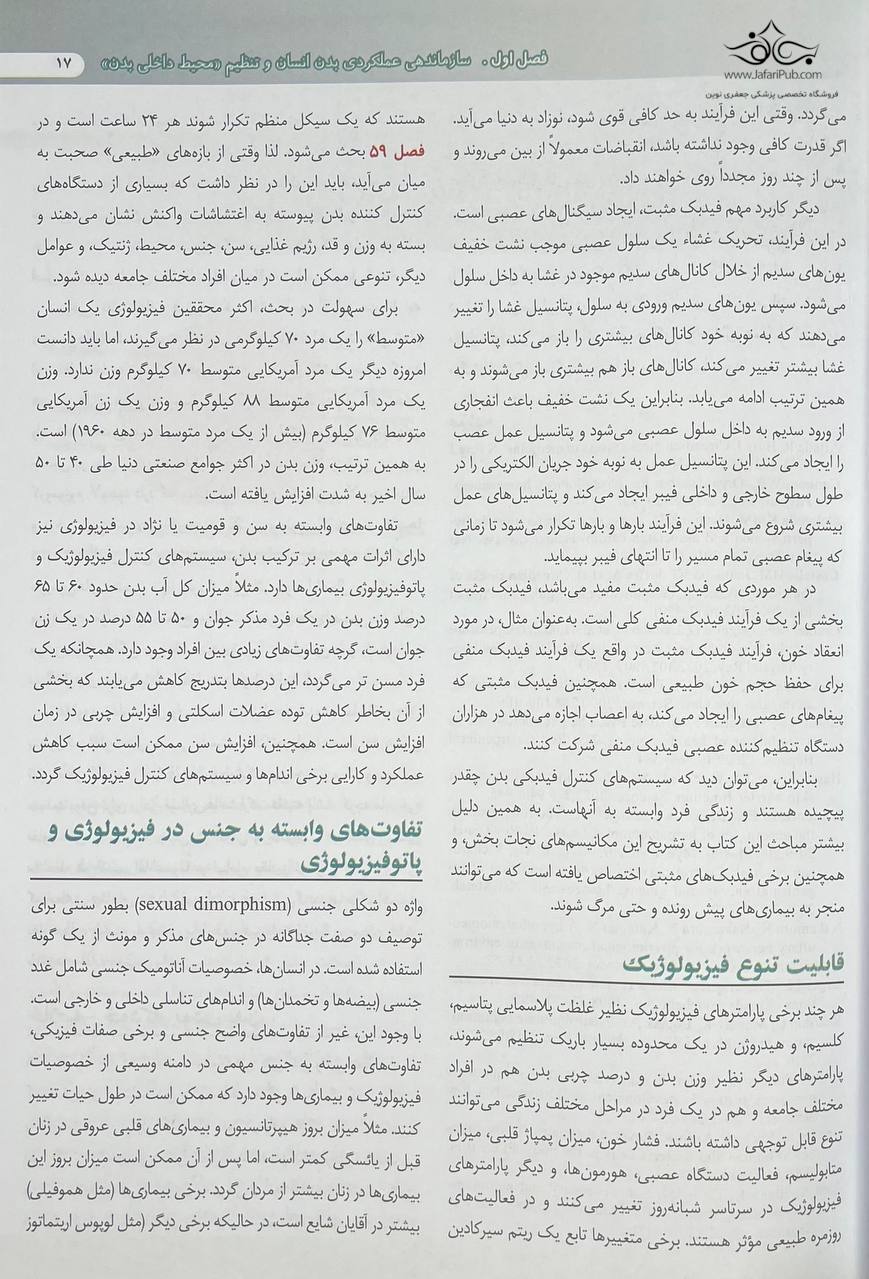 فصل اول . سازماندهی عملکردی بدن انسان و تنظیم «محیط داخلی بدن»
۱۷
www.JafariPub.com
فروشگاه تخصصی پزشکی جعفری نوین
می‌گردد. وقتی این فرآیند به حد کافی قوی شود، نوزاد به دنیا می‌آید.
اگر قدرت کافی وجود نداشته باشد، انقباضات معمولاً از بین می‌روند و
پس از چند روز مجدداً روی خواهند داد.
دیگر کاربرد مهم فیدبک مثبت، ایجاد سیگنال‌های عصبی است.
در این فرآیند، تحریک غشاء یک سلول عصبی موجب نشت خفیف
یون‌های سدیم از خلال کانال‌های سدیم موجود در غشا به داخل سلول
می‌شود. سپس یون‌های سدیم ورودی به سلول، پتانسیل غشا را تغییر
می‌دهند که به نوبه خود کانال‌های بیشتری را باز می‌کند، پتانسیل
غشا بیشتر تغییر می‌کند، کانال‌های باز هم بیشتری باز می‌شوند و به
همین ترتیب ادامه می‌یابد. بنابراین یک نشت خفیف باعث انفجاری
از ورود سدیم به داخل سلول عصبی می‌شود و پتانسیل عمل عصب
را ایجاد می‌کند. این پتانسیل عمل به نوبه خود جریان الکتریکی را در
طول سطوح خارجی و داخلی فیبر ایجاد می‌کند و پتانسیل‌های عمل
بیشتری شروع می‌شوند. این فرآیند بارها و بارها تکرار می‌شود تا زمانی
که پیغام عصبی تمام مسیر را تا انتهای فیبر بپیماید.
در هر موردی که فیدبک مثبت مفید می‌باشد، فیدبک مثبت
بخشی از یک فرآیند فیدبک منفی کلی است. به‌عنوان مثال، در مورد
انعقاد خون، فرآیند فیدبک مثبت در واقع یک فرآیند فیدبک منفی
برای حفظ حجم خون طبیعی است. همچنین فیدبک مثبتی که
پیغام‌های عصبی را ایجاد می‌کند، به اعصاب اجازه می‌دهد در هزاران
دستگاه تنظیم‌کننده عصبی فیدبک منفی شرکت کنند.
بنابراین، می‌توان دید که سیستم‌های کنترل فیدبکی بدن چقدر
پیچیده هستند و زندگی فرد وابسته به آنهاست. به همین دلیل
بیشتر مباحث این کتاب به تشریح این مکانیسم‌های نجات بخش، و
همچنین برخی فیدبک‌های مثبتی اختصاص یافته است که می‌توانند
منجر به بیماری‌های پیش رونده و حتی مرگ شوند.
قابلیت تنوع فیزیولوژیک
هر چند برخی پارامترهای فیزیولوژیک نظیر غلظت پلاسمایی پتاسیم،
کلسیم، و هیدروژن در یک محدوده بسیار باریک تنظیم می‌شوند،
پارامترهای دیگر نظیر وزن بدن و درصد چربی بدن هم در افراد
مختلف جامعه و هم در یک فرد در مراحل مختلف زندگی می‌توانند
تنوع قابل توجهی داشته باشند. فشار خون، میزان پمپاژ قلبی، میزان
متابولیسم، فعالیت دستگاه عصبی، هورمون‌ها، و دیگر پارامترهای
فیزیولوژیک در سرتاسر شبانه‌روز تغییر می‌کنند و در فعالیت‌های
روزمره طبیعی مؤثر هستند. برخی متغییرها تابع یک ریتم سیرکادین
هستند که یک سیکل منظم تکرار شوند هر ۲۴ ساعت است و در
فصل ۵۹ بحث می‌شود. لذا وقتی از بازه‌های «طبیعی» صحبت به
میان می‌آید، باید این را در نظر داشت که بسیاری از دستگاه‌های
کنترل کننده بدن پیوسته به اغتشاشات واکنش نشان می‌دهند و
بسته به وزن و قد، رژیم غذایی، سن، جنس، محیط، ژنتیک، و عوامل
دیگر، تنوعی ممکن است در میان افراد مختلف جامعه دیده شود.
برای سهولت در بحث، اکثر محققین فیزیولوژی یک انسان
«متوسط» را یک مرد ۷۰ کیلوگرمی در نظر می‌گیرند، اما باید دانست
امروزه دیگر یک مرد آمریکایی متوسط ۷۰ کیلوگرم وزن ندارد. وزن
یک مرد آمریکایی متوسط ۸۸ کیلوگرم و وزن یک زن آمریکایی
متوسط ۷۶ کیلوگرم (بیش از یک مرد متوسط در دهه ۱۹۶۰) است.
به همین ترتیب، وزن بدن در اکثر جوامع صنعتی دنیا طی ۴۰ تا ۵۰
سال اخیر به شدت افزایش یافته است.
تفاوت‌های وابسته به سن و قومیت یا نژاد در فیزیولوژی نیز
دارای اثرات مهمی بر ترکیب بدن، سیستم‌های کنترل فیزیولوژیک و
پاتوفیزیولوژی بیماری‌ها دارد. مثلاً میزان کل آب بدن حدود ۶۰ تا ۶۵
درصد وزن بدن در یک فرد مذکر جوان و ۵۰ تا ۵۵ درصد در یک زن
جوان است، گرچه تفاوت‌های زیادی بین افراد وجود دارد. همچانکه یک
فرد مسن تر می‌گردد، این درصدها بتدریج کاهش می‌یابند که بخشی
از آن بخاطر کاهش توده عضلات اسکلتی و افزایش چربی در زمان
افزایش سن است. همچنین، افزایش سن ممکن است سبب کاهش
عملکرد و کارایی برخی اندام‌ها و سیستم‌های کنترل فیزیولوژیک گردد.
تفاوت‌های وابسته به جنس در فیزیولوژی و
پاتوفیزیولوژی
واژه دو شکلی جنسی (sexual dimorphism) بطور سنتی برای
توصیف دو صفت جداگانه در جنس‌های مذکر و مونث از یک گونه
استفاده شده است. در انسان‌ها، خصوصیات آناتومیک جنسی شامل غدد
جنسی (بیضه‌ها و تخمدان‌ها) و اندام‌های تناسلی داخلی و خارجی است.
با وجود این، غیر از تفاوت‌های واضح جنسی و برخی صفات فیزیکی،
تفاوت‌های وابسته به جنس مهمی در دامنه وسیعی از خصوصیات
فیزیولوژیک و بیماری‌ها وجود دارد که ممکن است در طول حیات تغییر
کنند. مثلاً میزان بروز هیپرتانسیون و بیماری‌های قلبی عروقی در زنان
قبل از یائسگی کمتر است، اما پس از آن ممکن است میزان بروز این
بیماری‌ها در زنان بیشتر از مردان گردد. برخی بیماری‌ها (مثل هموفیلی)
بیشتر در آقایان شایع است، در حالیکه برخی دیگر (مثل لوپوس اریتماتوز